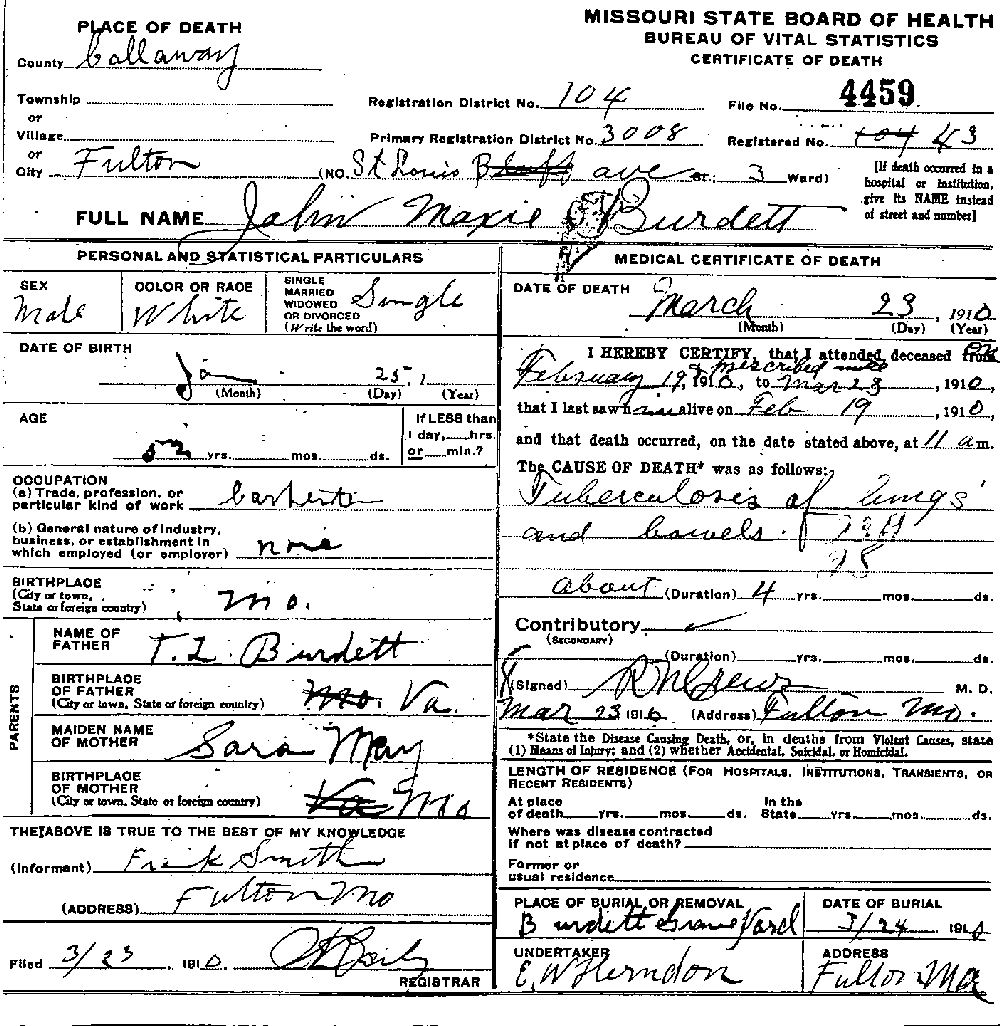 MISSOURI STATE BOARD OF HEALTH
BUREAU OF VITAL STATISTICS
CERTIFICATE OF DEATH
PLACE OF DEATH
County Callaway
Township
or
Village
or
City Fulton
Registration District No. 104
File No. 4459
Primary Registration District No. 3008
Registered No. 104 43
(NO. St Louis Bluff ave St. 3 Ward)
[If death occurred in a
hospital or institution,
give its NAME instead
of street and number]
FULL NAME John Maxie Burdett
PERSONAL AND STATISTICAL PARTICULARS
SEX
Male
COLOR OR RACE
White
SINGLE
MARRIED
WIDOWED
OR DIVORCED
(Write the word)
Single
DATE OF BIRTH
Jan 25, 1
(Month) (Day) (Year)
AGE
52 yrs. mos. ds.
If LESS than
1 day, hrs.
or min.?
OCCUPATION
(a) Trade, profession, or
particular kind of work Carpenter
(b) General nature of industry,
business, or establishment in
which employed (or employer) none
BIRTHPLACE
(City or town,
State or foreign country) Mo.
PARENTS
NAME OF
FATHER T. L. Burdett
BIRTHPLACE
OF FATHER
(City or town, State or foreign country) Mo. Va.
MAIDEN NAME
OF MOTHER Sara May
BIRTHPLACE
OF MOTHER
(City or town, State or foreign country) Va Mo
THE ABOVE IS TRUE TO THE BEST OF MY KNOWLEDGE
(Informant) Frank Smith
(ADDRESS) Fulton Mo
Filed 3/23 1910
REGISTRAR
MEDICAL CERTIFICATE OF DEATH
DATE OF DEATH
March 23, 1910
(Month) (Day) (Year)
I HEREBY CERTIFY, that I attended deceased from
& prescribed until
February 19, 1910, to Mar 23, 1910,
that I last saw him alive on Feb 19, 1910,
and that death occurred, on the date stated above, at 11 am.
The CAUSE OF DEATH* was as follows:
Tuberculosis of lungs
and bowels.
28
about (Duration) 4 yrs. mos. ds.
Contributory
(SECONDARY)
(Duration) yrs. mos. ds.
(Signed) R N Crews M. D.
Mar 23 1910 (Address) Fulton Mo.
*State the Disease Causing Death, or, in deaths from Violent Causes, state
(1) Means of Injury; and (2) whether Accidental, Suicidal, or Homicidal.
LENGTH OF RESIDENCE (FOR HOSPITALS, INSTITUTIONS, TRANSIENTS, OR
RECENT RESIDENTS)
At place
of death yrs. mos. ds.
In the
State yrs. mos. ds.
Where was disease contracted
if not at place of death?
Former or
usual residence
PLACE OF BURIAL OR REMOVAL
Burdett Grave Yard
DATE OF BURIAL
3/24 1910
UNDERTAKER
E. W Herndon
ADDRESS
Fulton Mo